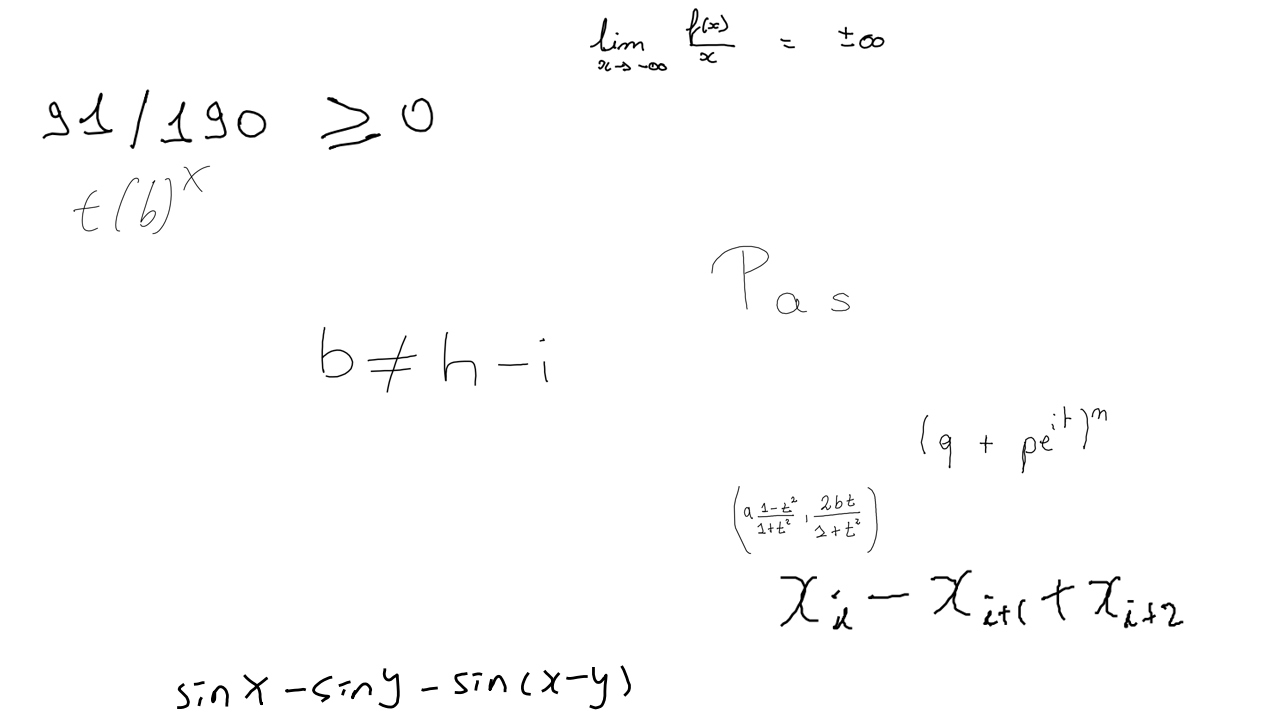 lim_{x→-∞} f(x)/x = ±∞
91/190 ≥ 0
t(b)^x
Pas
b ≠ h - i
(q + pe^{it})^n
(a (1-t^2)/(1+t^2), 2bt/(1+t^2))
x_i - x_{i+1} + x_{i+2}
sin x - sin y - sin(x-y)